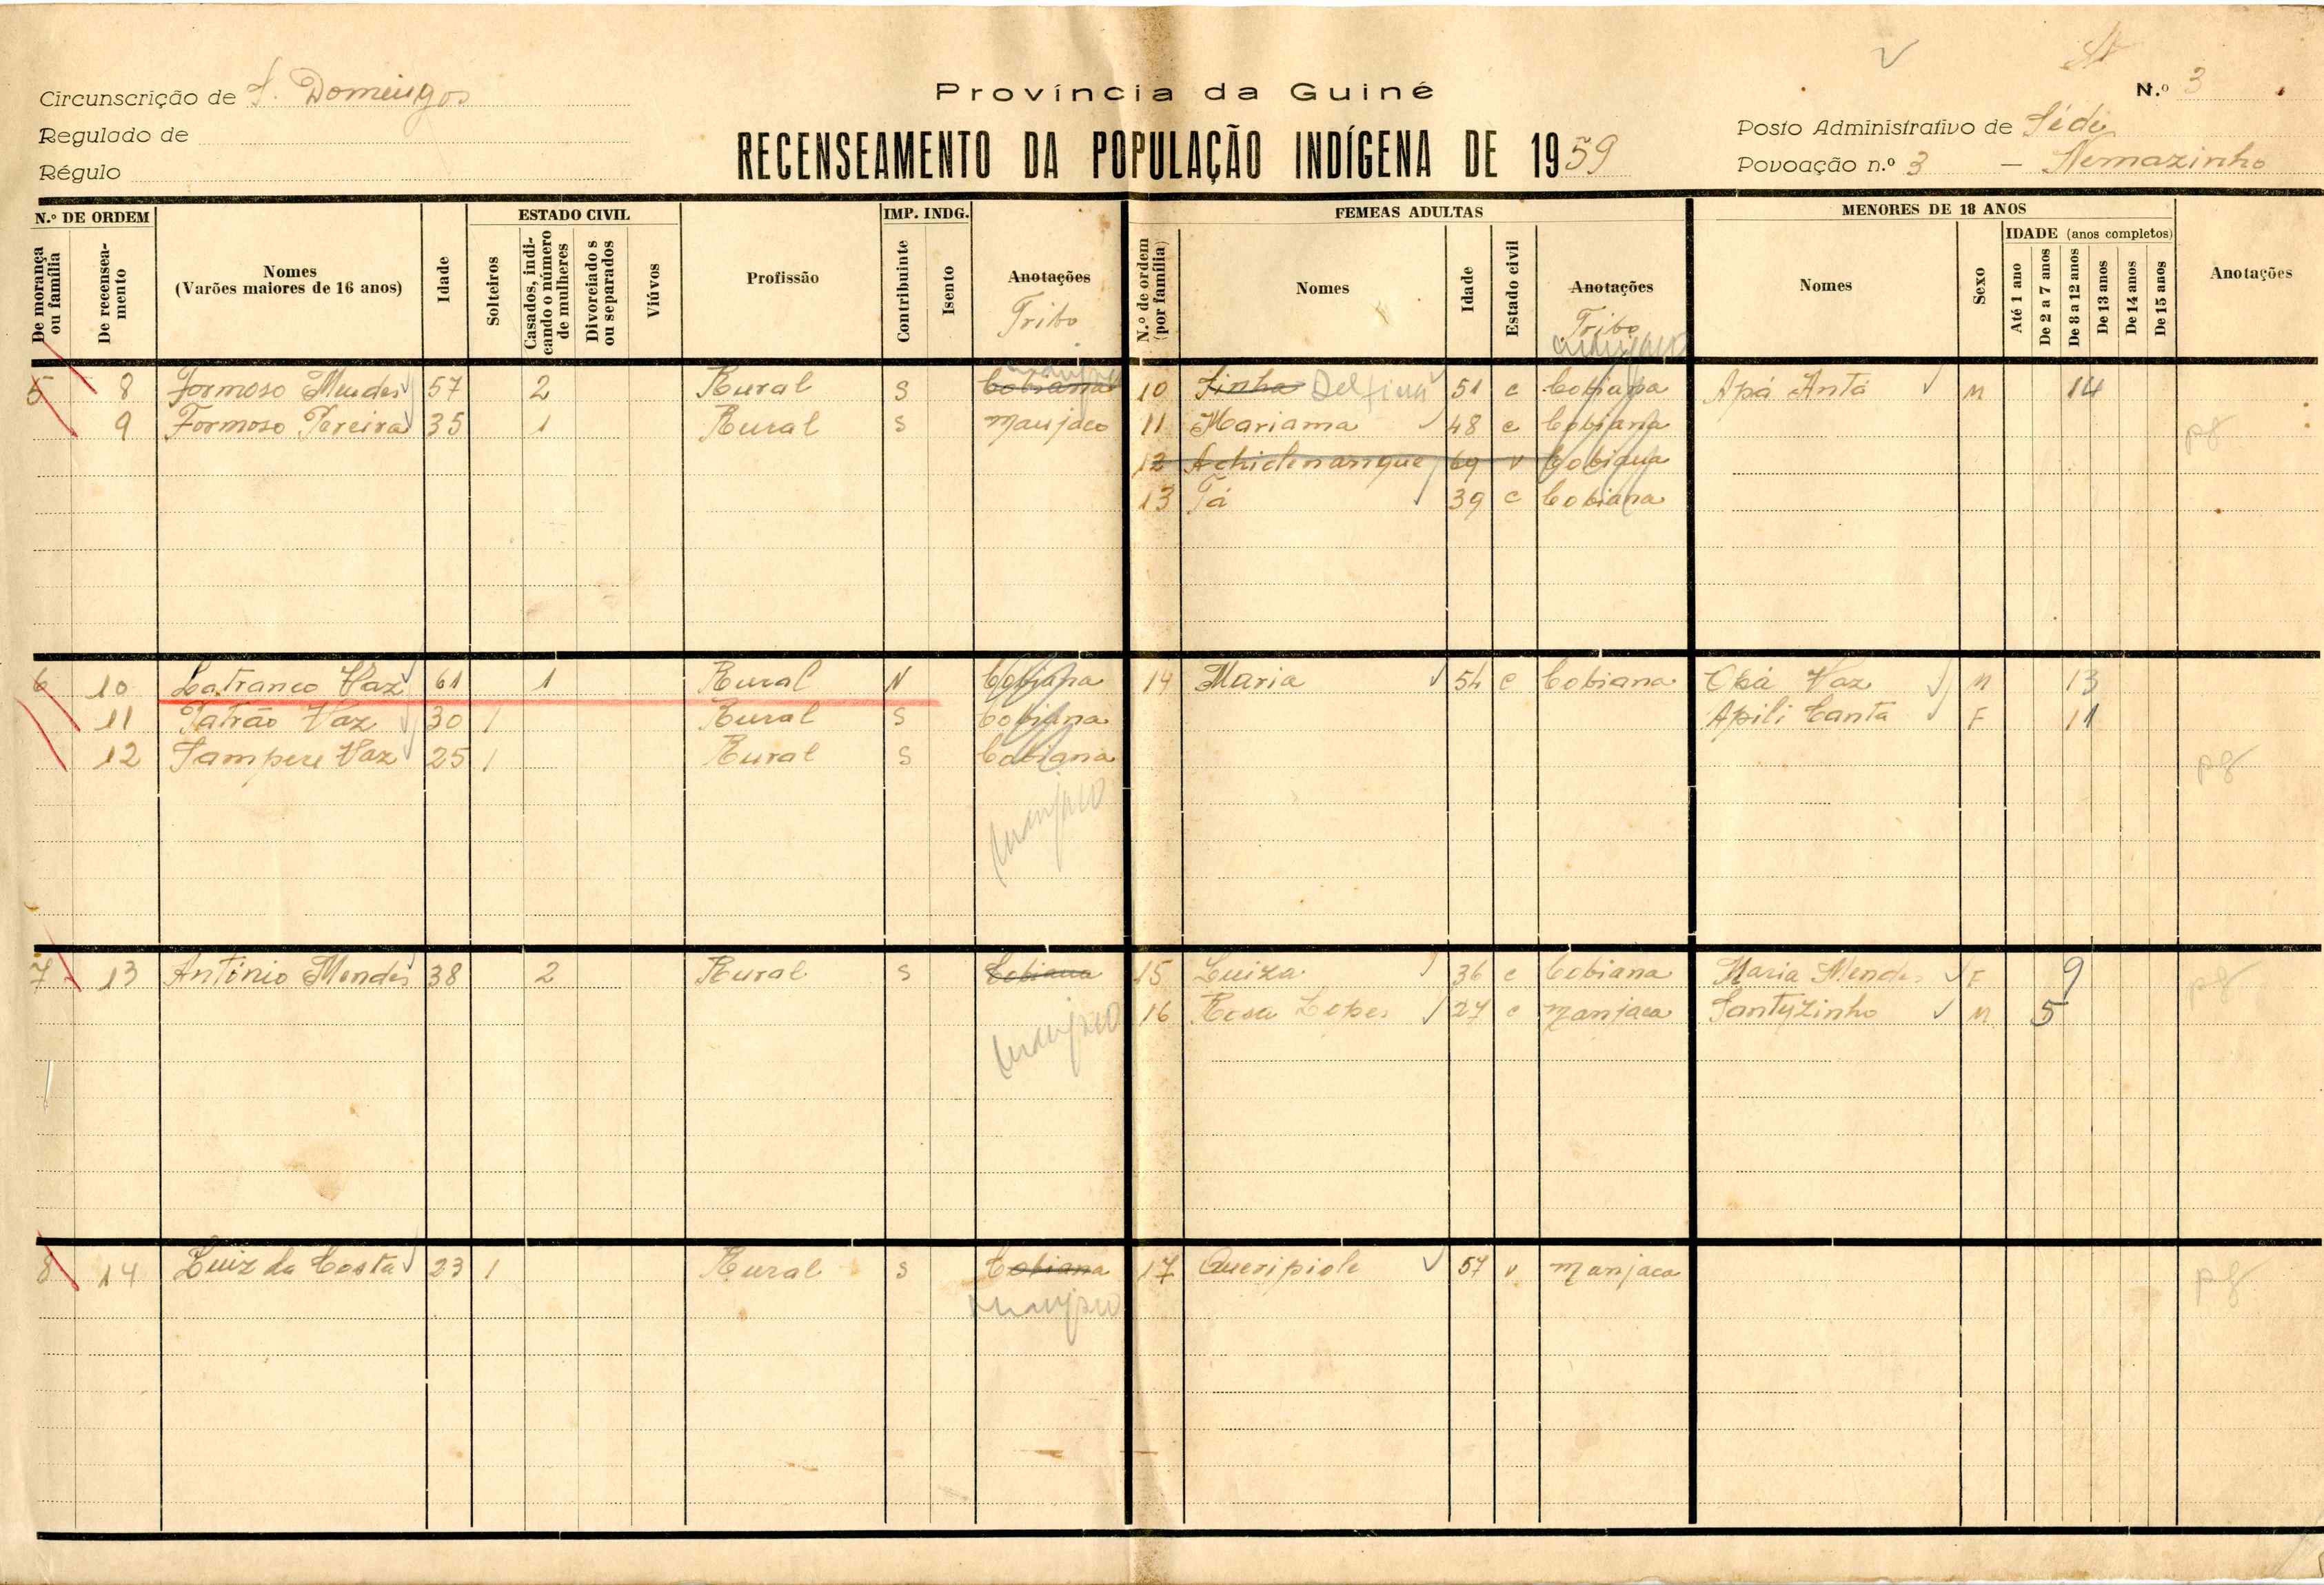 Circunscrição de S. Domingos
Regulado de
Régulo
Província da Guiné
RECENSEAMENTO DA POPULAÇÃO INDÍGENA DE 1959
N.º 3
Posto Administrativo de Séde
Povoação n.º 3 — Nemazinho
N.º DE ORDEM
De morança ou família
De recenseamento
Nomes
(Varões maiores de 16 anos)
Idade
ESTADO CIVIL
Solteiros
Casados, indicando o número de mulheres
Divorciados ou separados
Viúvos
Profissão
IMP. INDG.
Contribuinte
Isento
Anotações
Tribo
FEMEAS ADULTAS
N.º de ordem (por família)
Nomes
Idade
Estado civil
Anotações
Tribo
manjaco
MENORES DE 18 ANOS
Nomes
Sexo
IDADE (anos completos)
Até 1 ano
De 2 a 7 anos
De 8 a 12 anos
De 13 anos
De 14 anos
De 15 anos
Anotações
manjaco
5 8 Formoso Mendes 57 2 Rural S Cobiana 10 Sinha Delfina 51 c Cobiana Apá Antá M 14
9 Formoso Pereira 35 1 Rural S manjaco 11 Mariama 48 c Cobiana pg
12 Achidenarique 69 v Cobiana
13 Tá 39 c Cobiana
6 10 Lafranco Vaz 61 1 Rural N Cobiana 14 Maria 54 c Cobiana Obá Vaz M 13
11 Patrão Vaz 30 1 Rural S Cobiana Apili Canta F 11
12 Sampere Vaz 25 1 Rural S Cobiana pg
manjaco
7 13 António Mendes 38 2 Rural S Cobiana 15 Luiza 36 c Cobiana Maria Mendes F 9 pg
manjaco 16 Rosa Lopes 27 c manjaca Santyzinho M 5
8 14 Luiz da Costa 23 1 Rural S Cobiana 17 Queripiole 57 v manjaca pg
manjaco